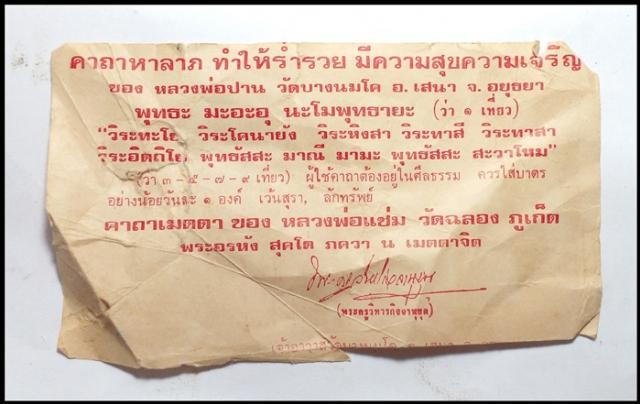 คาถาหาลาภ ทำให้ร่ำรวย มีความสุขความเจริญ
ของ หลวงพ่อปาน วัดบางนมโค อ. เสนา จ. อยุธยา
พุทธะ มะอะอุ นะโมพุทธายะ (ว่า ๑ เที่ยว)
"วิระทะโย วิระโคนายัง วิระหิงสา วิระทาสี วิระทาสา
วิระอิตถิโย พุทธัสสะ มาณี มามะ พุทธัสสะ สะวาโหม"
(ว่า ๓ – ๕ – ๗ – ๙ เที่ยว) ผู้ใช้คาถาต้องอยู่ในศีลธรรม ควรใส่บาตร
อย่างน้อยวันละ ๑ องค์ เว้นสุรา, ลักทรัพย์
คาถาเมตตา ของ หลวงพ่อแช่ม วัดฉลอง ภูเก็ต
พระอรหัง สุคโต ภควา น เมตตาจิต
(พระครูวิหารกิจจานุยุต)
เจ้าอาวาสวัดบางนมโค อ. เสนา จ.